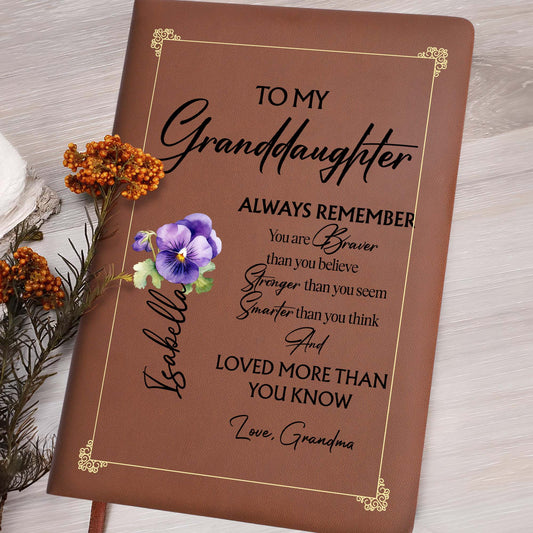 TO MY
Granddaughter
ALWAYS REMEMBER
You are Braver
than you believe
Stronger than you seem
Smarter than you think
And
LOVED MORE THAN
YOU KNOW
Love, Grandma
Isabella